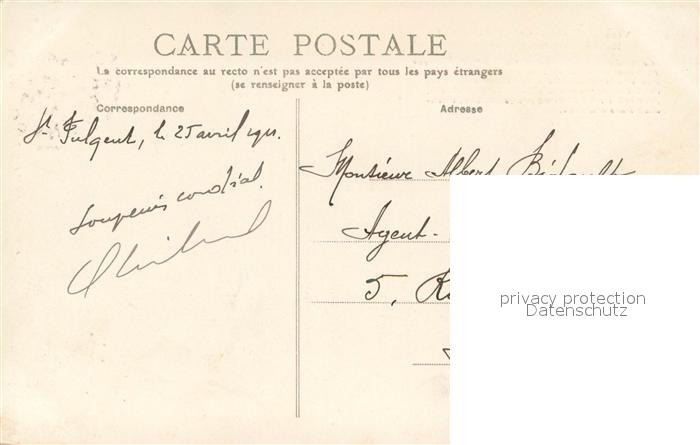 CARTE POSTALE
La correspondance au recto n'est pas acceptée par tous les pays étrangers
(se renseigner à la poste)
Correspondance
Adresse
St Fulgent, le 25 avril 1911.
Souvenir cordial.
Monsieur Albert
Agent-
5,
privacy protection
Datenschutz